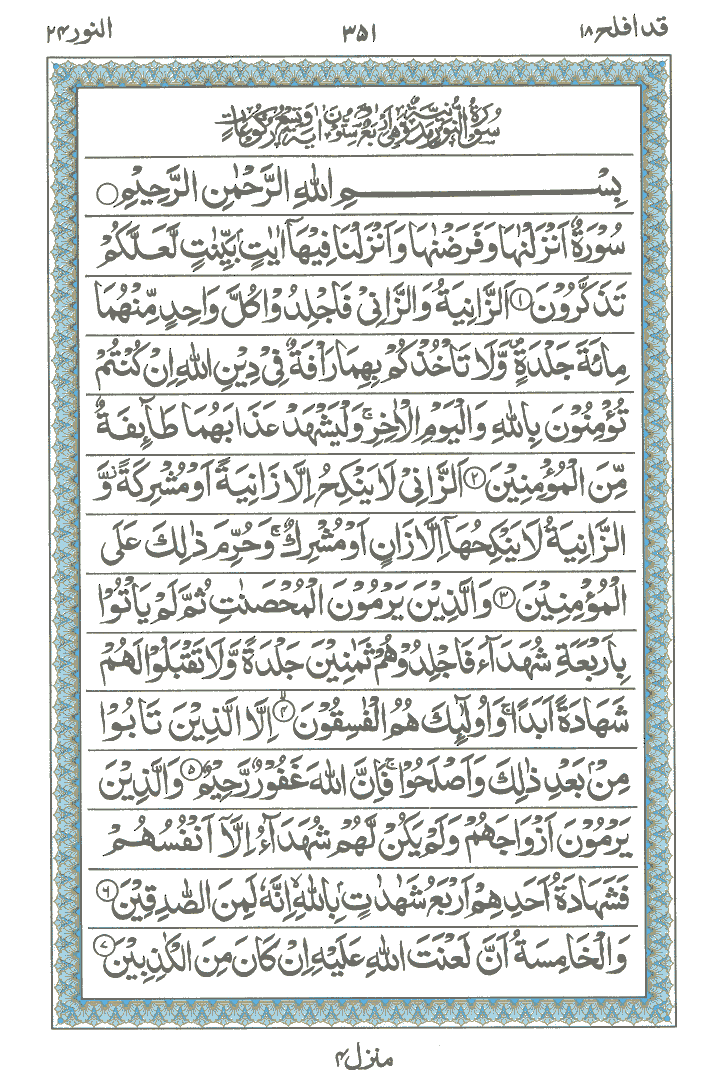 قد افلح ۱۸ ۳۵۱ النور ۲۴
سُوْرَةُ النُّوْرِ مَدَنِيَّةٌ وَّهِيَ اَرْبَعٌ وَّسِتُّوْنَ اٰيَةً وَّتِسْعُ رُكُوْعَاتٍ
بِسْمِ اللّٰهِ الرَّحْمٰنِ الرَّحِيْمِ ○
سُوْرَةٌ اَنْزَلْنٰهَا وَفَرَضْنٰهَا وَاَنْزَلْنَا فِيْهَآ اٰيٰتٍۭ بَيِّنٰتٍ لَّعَلَّكُمْ
تَذَكَّرُوْنَ ۱ اَلزَّانِيَةُ وَالزَّانِيْ فَاجْلِدُوْا كُلَّ وَاحِدٍ مِّنْهُمَا
مِائَةَ جَلْدَةٍ ۠ وَّلَا تَاْخُذْكُمْ بِهِمَا رَاْفَةٌ فِيْ دِيْنِ اللّٰهِ اِنْ كُنْتُمْ
تُؤْمِنُوْنَ بِاللّٰهِ وَالْيَوْمِ الْاٰخِرِ ۚ وَلْيَشْهَدْ عَذَابَهُمَا طَآئِفَةٌ
مِّنَ الْمُؤْمِنِيْنَ ۲ اَلزَّانِيْ لَا يَنْكِحُ اِلَّا زَانِيَةً اَوْ مُشْرِكَةً ۡ وَّ
الزَّانِيَةُ لَا يَنْكِحُهَآ اِلَّا زَانٍ اَوْ مُشْرِكٌ ۚ وَحُرِّمَ ذٰلِكَ عَلَى
الْمُؤْمِنِيْنَ ۳ وَالَّذِيْنَ يَرْمُوْنَ الْمُحْصَنٰتِ ثُمَّ لَمْ يَاْتُوْا
بِاَرْبَعَةِ شُهَدَآءَ فَاجْلِدُوْهُمْ ثَمٰنِيْنَ جَلْدَةً وَّلَا تَقْبَلُوْا لَهُمْ
شَهَادَةً اَبَدًا ۚ وَاُولٰٓئِكَ هُمُ الْفٰسِقُوْنَ ۴ اِلَّا الَّذِيْنَ تَابُوْا
مِنْۢ بَعْدِ ذٰلِكَ وَاَصْلَحُوْا ۚ فَاِنَّ اللّٰهَ غَفُوْرٌ رَّحِيْمٌ ۵ وَالَّذِيْنَ
يَرْمُوْنَ اَزْوَاجَهُمْ وَلَمْ يَكُنْ لَّهُمْ شُهَدَآءُ اِلَّآ اَنْفُسُهُمْ
فَشَهَادَةُ اَحَدِهِمْ اَرْبَعُ شَهٰدٰتٍۭ بِاللّٰهِ ۙ اِنَّهٗ لَمِنَ الصّٰدِقِيْنَ ۶
وَالْخَامِسَةُ اَنَّ لَعْنَتَ اللّٰهِ عَلَيْهِ اِنْ كَانَ مِنَ الْكٰذِبِيْنَ ۷
منزل ۴